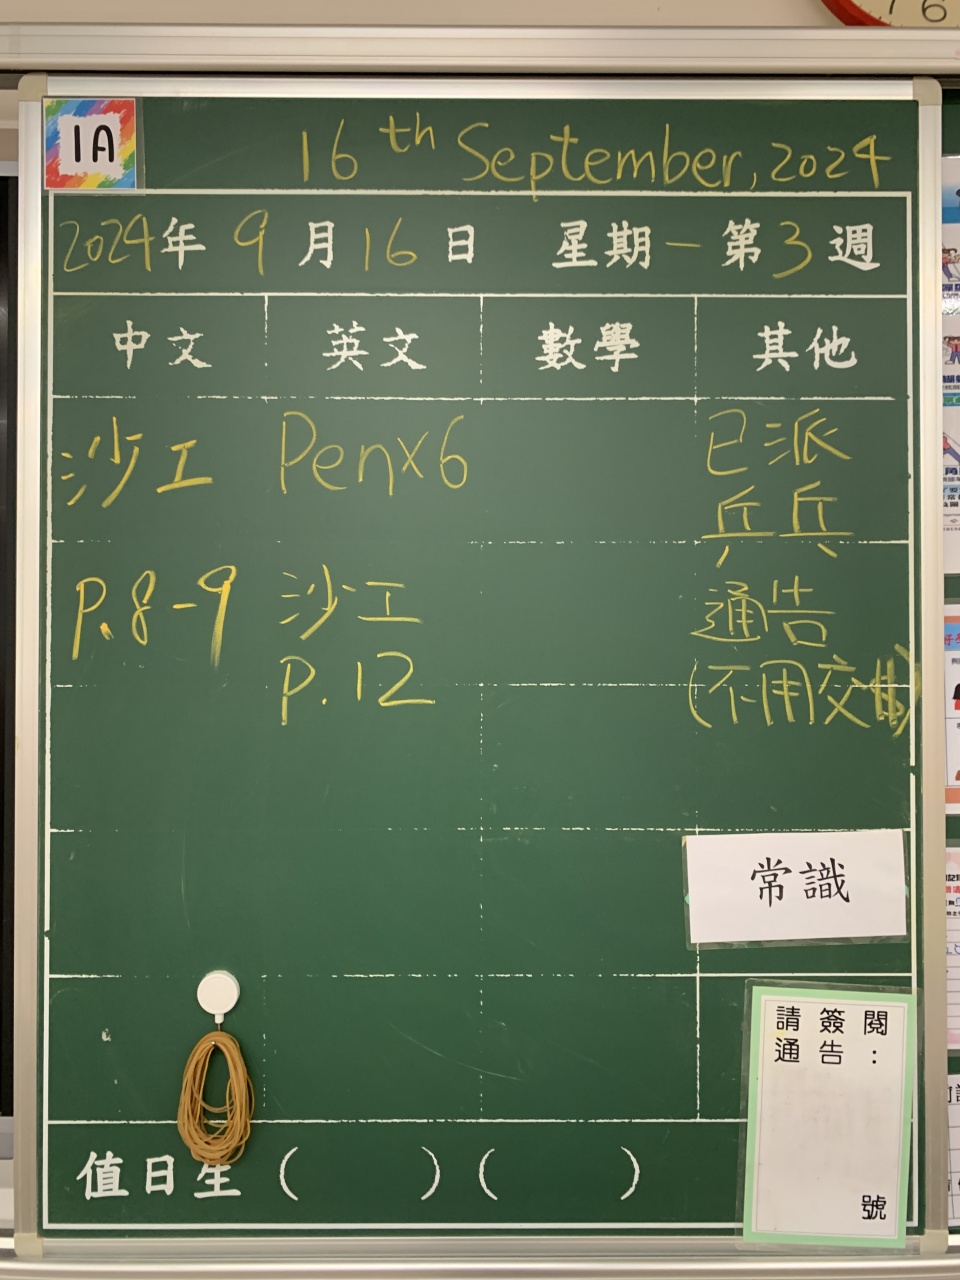 1A
16th September, 2024
2024年 9月16日 星期一 第3週
中文 英文 數學 其他
沙工 Pen×6 已派
乒乓
P.8-9 沙工 通告
P.12 (不用交
常識
請簽閱
通告：
號
值日生( )( )